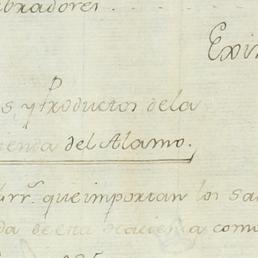 bradores
Exis
P
s, y Productos dela
ienda del Alamo.
rr.^s que importan los sa
da de esta Hacienda como